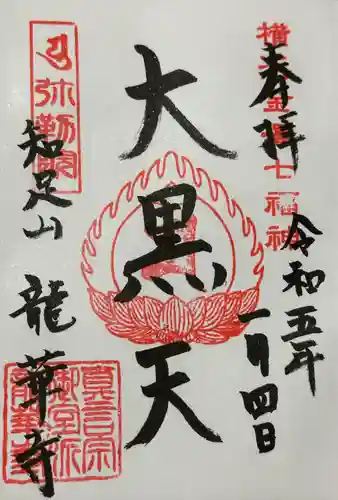 奉拝
横浜金澤七福神
令和五年
一月四日
大黒天
弥勒閣
知足山
龍華寺
真言宗
御室派
龍華寺